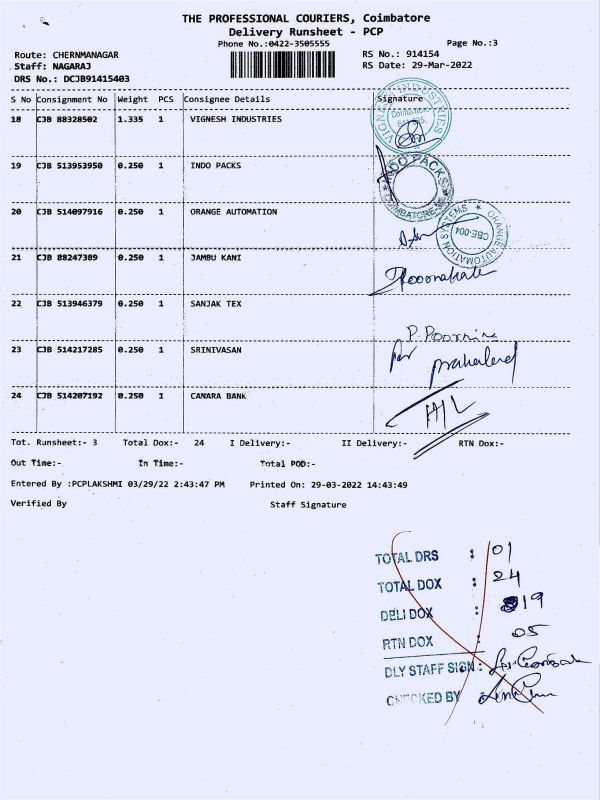 THE PROFESSIONAL COURIERS, Coimbatore
Delivery Runsheet - PCP
Phone No.:0422-3505555
Page No.:3
Route: CHERNMANAGAR
RS No.: 914154
Staff: NAGARAJ
RS Date: 29-Mar-2022
DRS No.: DCJB91415403
S No Consignment No Weight PCS Consignee Details Signature
18 CJB 88328502 1.335 1 VIGNESH INDUSTRIES
VIGNESH INDUSTRIES
19 CJB 513953950 0.250 1 INDO PACKS
INDO PACKS
COIMBATORE
20 CJB 514097916 0.250 1 ORANGE AUTOMATION
ORANGE AUTOMATION SYSTEMS
CBE-004
21 CJB 88247389 0.250 1 JAMBU KANI
22 CJB 513946379 0.250 1 SANJAK TEX
P. Poornima
23 CJB 514217285 0.250 1 SRINIVASAN
24 CJB 514207192 0.250 1 CANARA BANK
Tot. Runsheet:- 3 Total Dox:- 24 I Delivery:- II Delivery:- RTN Dox:-
Out Time:- In Time:- Total POD:-
Entered By :PCPLAKSHMI 03/29/22 2:43:47 PM Printed On: 29-03-2022 14:43:49
Verified By Staff Signature
TOTAL DRS : 01
TOTAL DOX : 24
DELI DOX : 19
RTN DOX : 05
DLY STAFF SIGN :
CHECKED BY